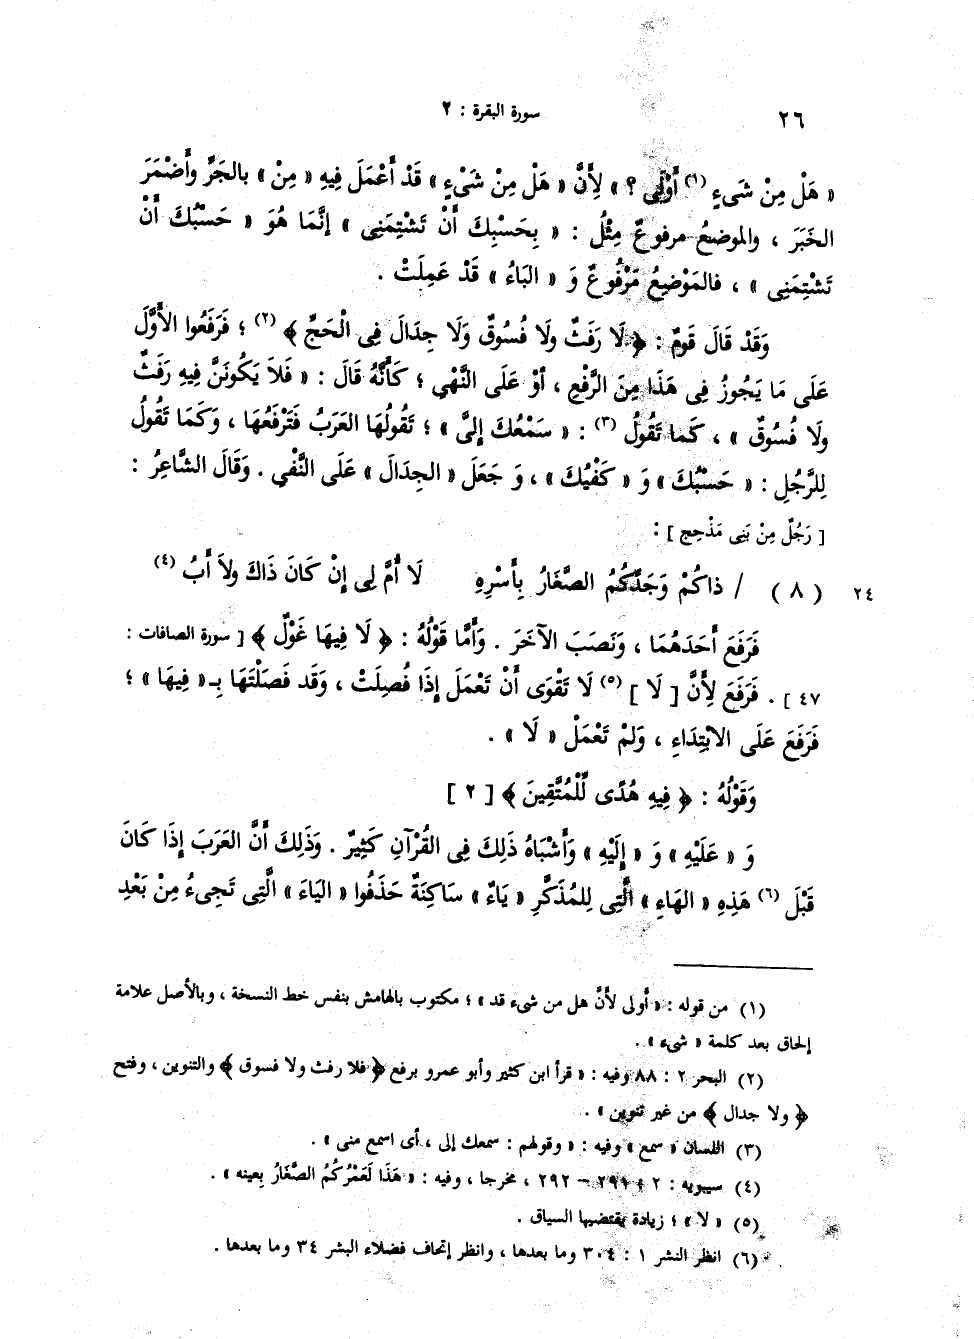 ٢٦
سورة البقرة : ٢
« هَلْ مِنْ شَىءٍ (١) أَوْلَى ؟ » لِأَنَّ « هَلْ مِنْ شَىْءٍ » قَدْ أَعْمَلَ فِيهِ « مِنْ » بالجَرِّ وأَضْمَرَ
الخَبَرَ ، والموضعُ مرفوعٌ مِثْلُ : « بِحَسْبِكَ أَنْ تَشْتِمَنِى » إنَّمَا هُوَ « حَسْبُكَ أَنْ
تَشْتِمَنِى » ، فالمَوْضِعُ مَرْفُوعٌ وَ « البَاءُ » قَدْ عَمِلَتْ .
وَقَدْ قَالَ قَومٌ : ﴿ لَا رَفَثٌ ولَا فُسُوقٌ وَلَا جِدَالَ فِى الْحَجِّ ﴾ (٢) ؛ فَرَفَعُوا الأَوَّلَ
عَلَى مَا يَجُوزُ فِى هَذَا مِنَ الرَّفْعِ ، أوْ عَلَى النَّهْىِ ؛ كَأَنَّهُ قَالَ : « فَلاَ يَكُونَنَّ فِيهِ رَفَثٌ
ولَا فُسُوقٌ » ، كَما تَقُولُ (٣) : « سَمْعُكَ إلىَّ » ؛ تَقُولُهَا العَرَبُ فَتَرْفَعُهَا ، وَكَمَا تَقُولُ
لِلرَّجُلِ : « حَسْبُكَ » وَ « كَفْيُكَ » ، وَ جَعَلَ « الجِدَالَ » عَلَى النَّفْىِ . وَقَالَ الشَّاعِرُ :
[ رَجُلٌ مِنْ بَنِى مَذْحِج ] :
٢٤ ( ٨ ) / ذاكُمْ وَجَدِّكُمُ الصَّغَارُ بِأَسْرِهِ لَا أُمَّ لِى إنْ كَانَ ذَاكَ ولاَ أَبُ (٤)
فَرَفَعَ أَحَدَهُمَا ، وَنَصَبَ الآخَرَ . وَأَمَّا قَوْلُهُ : ﴿ لَا فِيهَا غَوْلٌ ﴾ [ سورة الصافات :
٤٧ ] . فَرَفَعَ لِأَنَّ [ لَا ] (٥) لَا تَقْوَى أَنْ تَعْمَلَ إذَا فُصِلَتْ ، وَقَد فَصَلْتَهَا بِـ « فِيهَا » ؛
فَرَفَعَ عَلَى الابْتِدَاءِ ، وَلمْ تَعْمَلْ « لَا » .
وَقَوْلُهُ : ﴿ فِيهِ هُدًى لِّلْمُتَّقِينَ ﴾ [ ٢ ]
وَ « عَلَيْهِ » وَ « إلَيْهِ » وَأَشْبَاهُ ذَلِكَ فِى القُرْآنِ كَثِيرٌ . وَذَلِكَ أَنَّ العَرَبَ إذَا كَانَ
قَبْلَ (٦) هَذِهِ « الهَاءِ » الَّتِى لِلمُذَكَّرِ « يَاءٌ » سَاكِنَةٌ حَذَفُوا « اليَاءَ » الَّتِى تَجِىءُ مِنْ بَعْدِ
(١) من قوله : « أولى لأنَّ هل من شىء قد » ؛ مكتوب بالهامش بنفس خط النسخة ، وبالأصل علامة
إلحاق بعد كلمة « شىء » .
(٢) البحر ٢ : ٨٨ وفيه : « قرأ ابن كثير وأبو عمرو برفع ﴿ فلا رفث ولا فسوق ﴾ والتنوين ، وفتح
﴿ ولا جدال ﴾ من غير تنوين » .
(٣) اللسان « سمع » وفيه : « وقولهم : سمعك إلى ، أى اسمع منى » .
(٤) سيبويه : ٢ : ٢٩١ – ٢٩٢ ، مخرجا ، وفيه : « هَذَا لَعَمْرُكُمُ الصَّغَارُ بِعينه » .
(٥) « لا » ؛ زيادة يقتضيها السياق .
(٦) انظر النشر ١ : ٣٠٤ وما بعدها ، وانظر إتحاف فضلاء البشر ٣٤ وما بعدها .